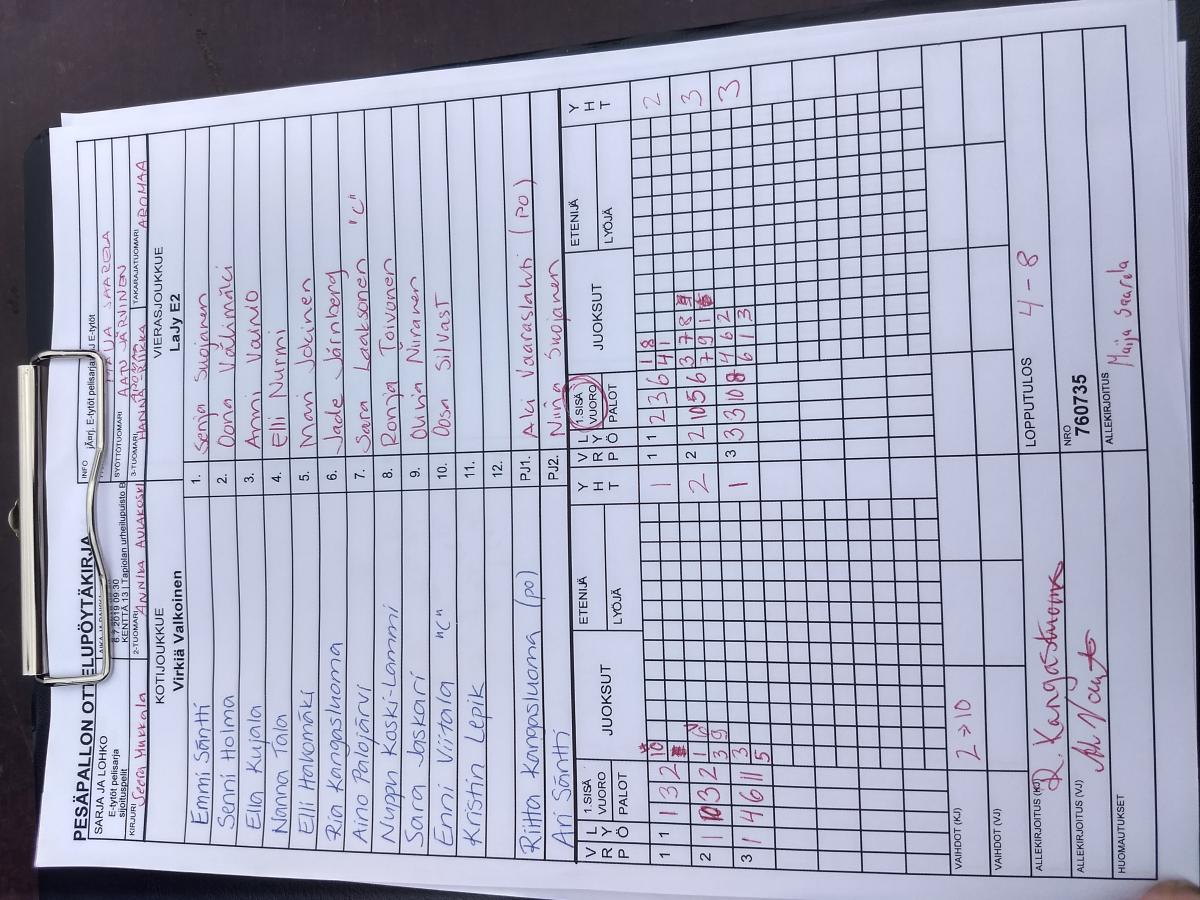 PESÄPALLON OTTELUPÖYTÄKIRJA
SARJA JA LOHKO
E-tytöt pelisarja
sijoituspelit
8.7.2019 09:30
KENTTÄ 13 | Tapiolan urheilupuisto B
INFO
E-tytöt pelisarja
E-tytöt
SYÖTTÖTUOMARI AATU JÄRVINEN
SAARELA
KIRJURI Seera Hukkala
2-TUOMARI ANNIKA AULAKOSKI
3-TUOMARI
TAKARAJATUOMARI AROMAA
KOTIJOUKKUE
Virkiä Valkoinen
VIERASJOUKKUE
LaJy E2
Emmi Säntti 1. Senja Suojanen
Senni Holma 2. Oona Välimäki
Ella Kujala 3. Anni Vainio
Nanna Tala 4. Elli Nurmi
Elli Hakomäki 5. Mari Jokinen
Ria Kangasluoma 6. Jade Järnberg
Aino Palojärvi 7. Sara Laaksonen "C"
Nuppu Koski-Lammi 8. Ronja Toivonen
Sara Jaskari 9. Niiranen
Enni Viitala "C" 10. Oosa Silvast
Kristin Lepik 11.
12.
Riitta Kangasluoma (po) PJ1. Aki Vaaraslahti (po)
Ari Säntti PJ2. Niina Suojanen
V R P L Y Ö 1.SISÄ VUORO PALOT JUOKSUT ETENIJÄ LYÖJÄ Y H T V R P L Y Ö 1.SISÄ VUORO PALOT JUOKSUT ETENIJÄ LYÖJÄ Y H T
1 1 1 3 2 10 1 1 1 2 3 6 4 1 1 8 2
2 1 10 3 2 1 3 9 2 2 2 10 5 6 3 7 8 7 9 1 3
3 1 4 6 11 3 5 1 3 3 3 10 8 4 6 2 6 1 3 3
VAIHDOT (KJ) 2→10
VAIHDOT (VJ)
ALLEKIRJOITUS (KJ) R. Kangasluoma
LOPPUTULOS 4-8
ALLEKIRJOITUS (VJ)
NRO
760735
HUOMAUTUKSET
ALLEKIRJOITUS
Maija Saarela